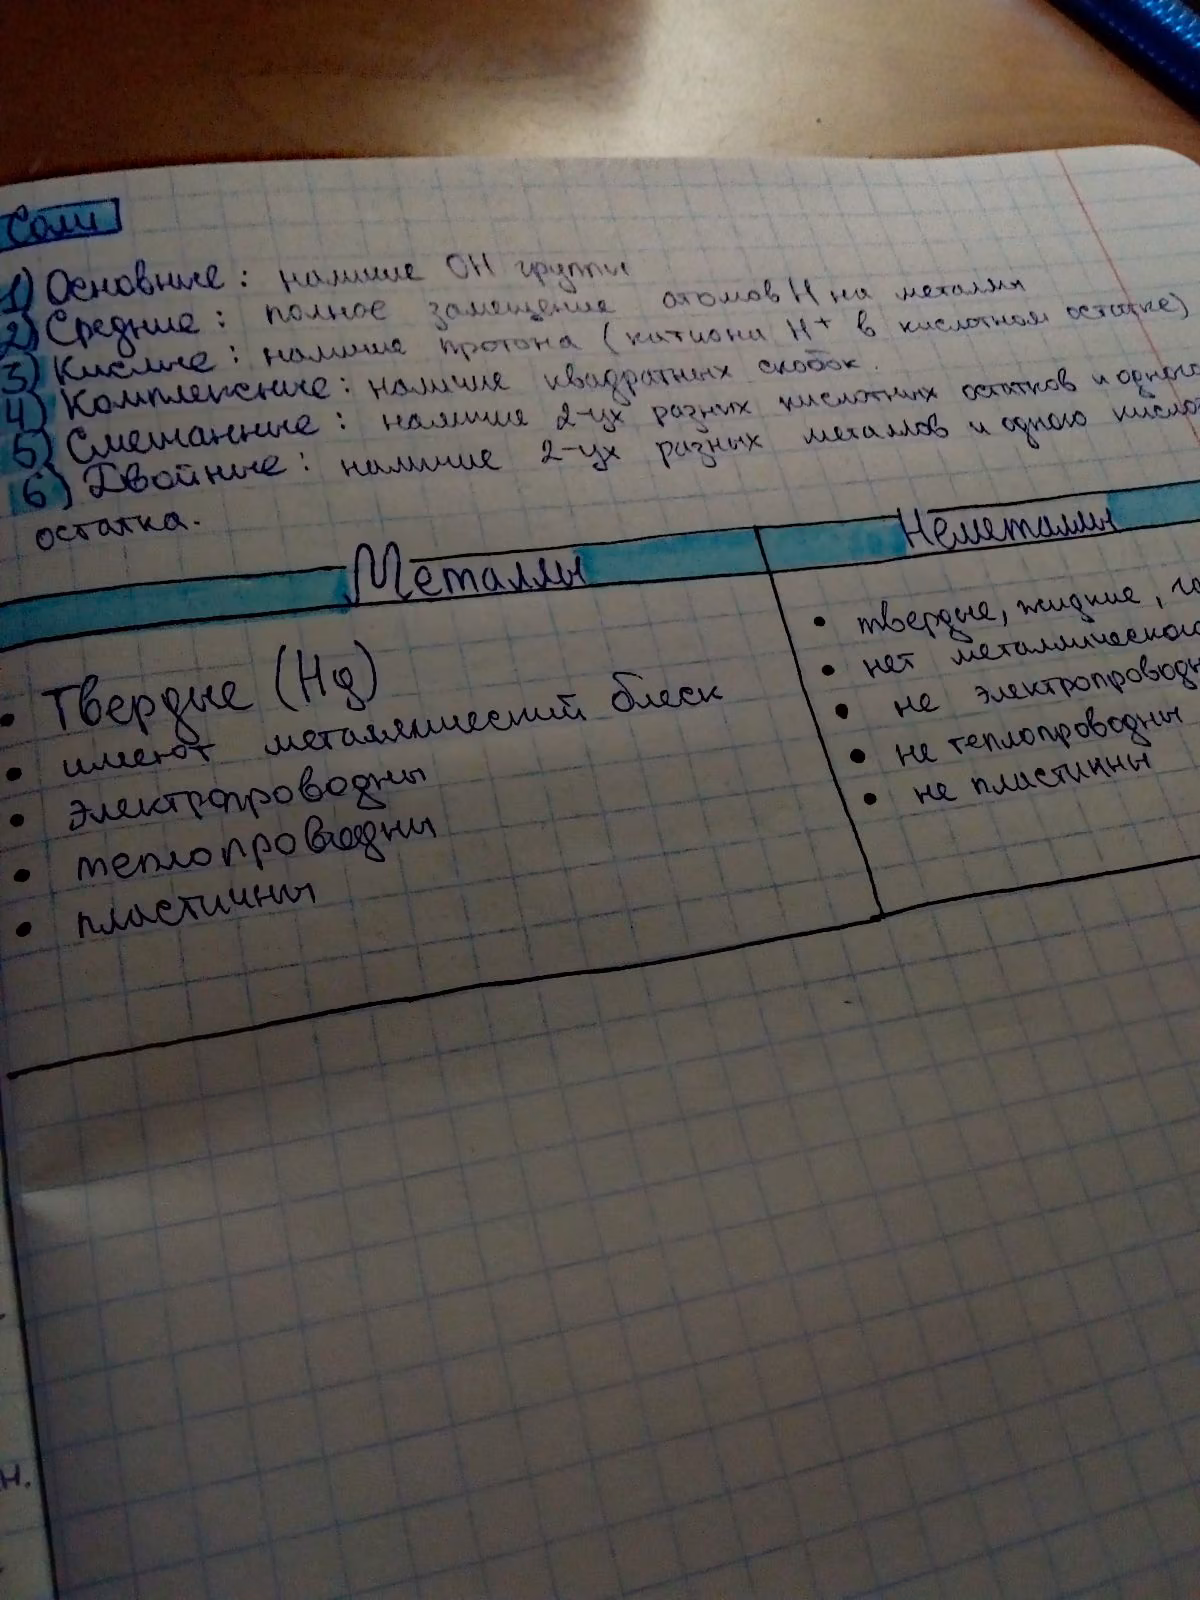 Соли
1) Основные: наличие OH группы
2) Средние: полное замещение атомов H на металлы
3) Кислые: наличие протона (катиона H⁺ в кислотном остатке)
4) Комплексные: наличие квадратных скобок.
5) Смешанные: наличие 2-ух разных кислотных остатков и одного
6) Двойные: наличие 2-ух разных металлов и одного кислот
остатка.
Металлы
Неметаллы
• Твердые (Hg)
• имеют металлический блеск
• электропроводны
• теплопроводны
• пластичны
• твердые, жидкие, га
• нет металлического
• не электропроводн
• не теплопроводны
• не пластичны
н.